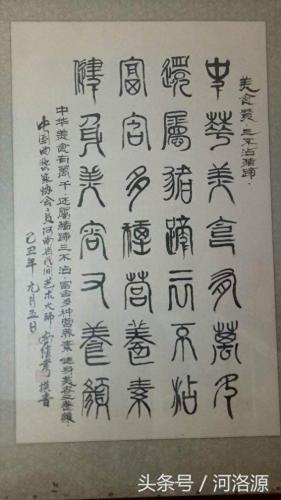 美食赞 三不沾猪蹄
中華美食有萬千
還屬豬蹄三不沾
富含多種營養素
健身美容又養顏
中华美食有萬千 还属猪蹄三不沾 富含多种营养素 健身美容又養颜
中国曲艺家协会会员 河南省民间艺术大师 撰書
己丑年 九月五日
头条号 / 河洛源